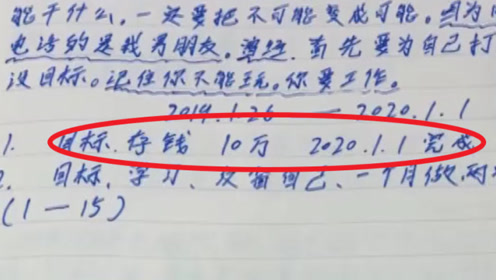 能干什么，一定要把不可能变成可能。因为
也该的是我男朋友。
首先要为自己打
没目标。记住你不能玩。你要工作。
2019.1.26 —— 2020.1.1
1. 目标．存钱 10万 2020.1.1完成
目标，学习、 自己、一个月做，两
(1—15)